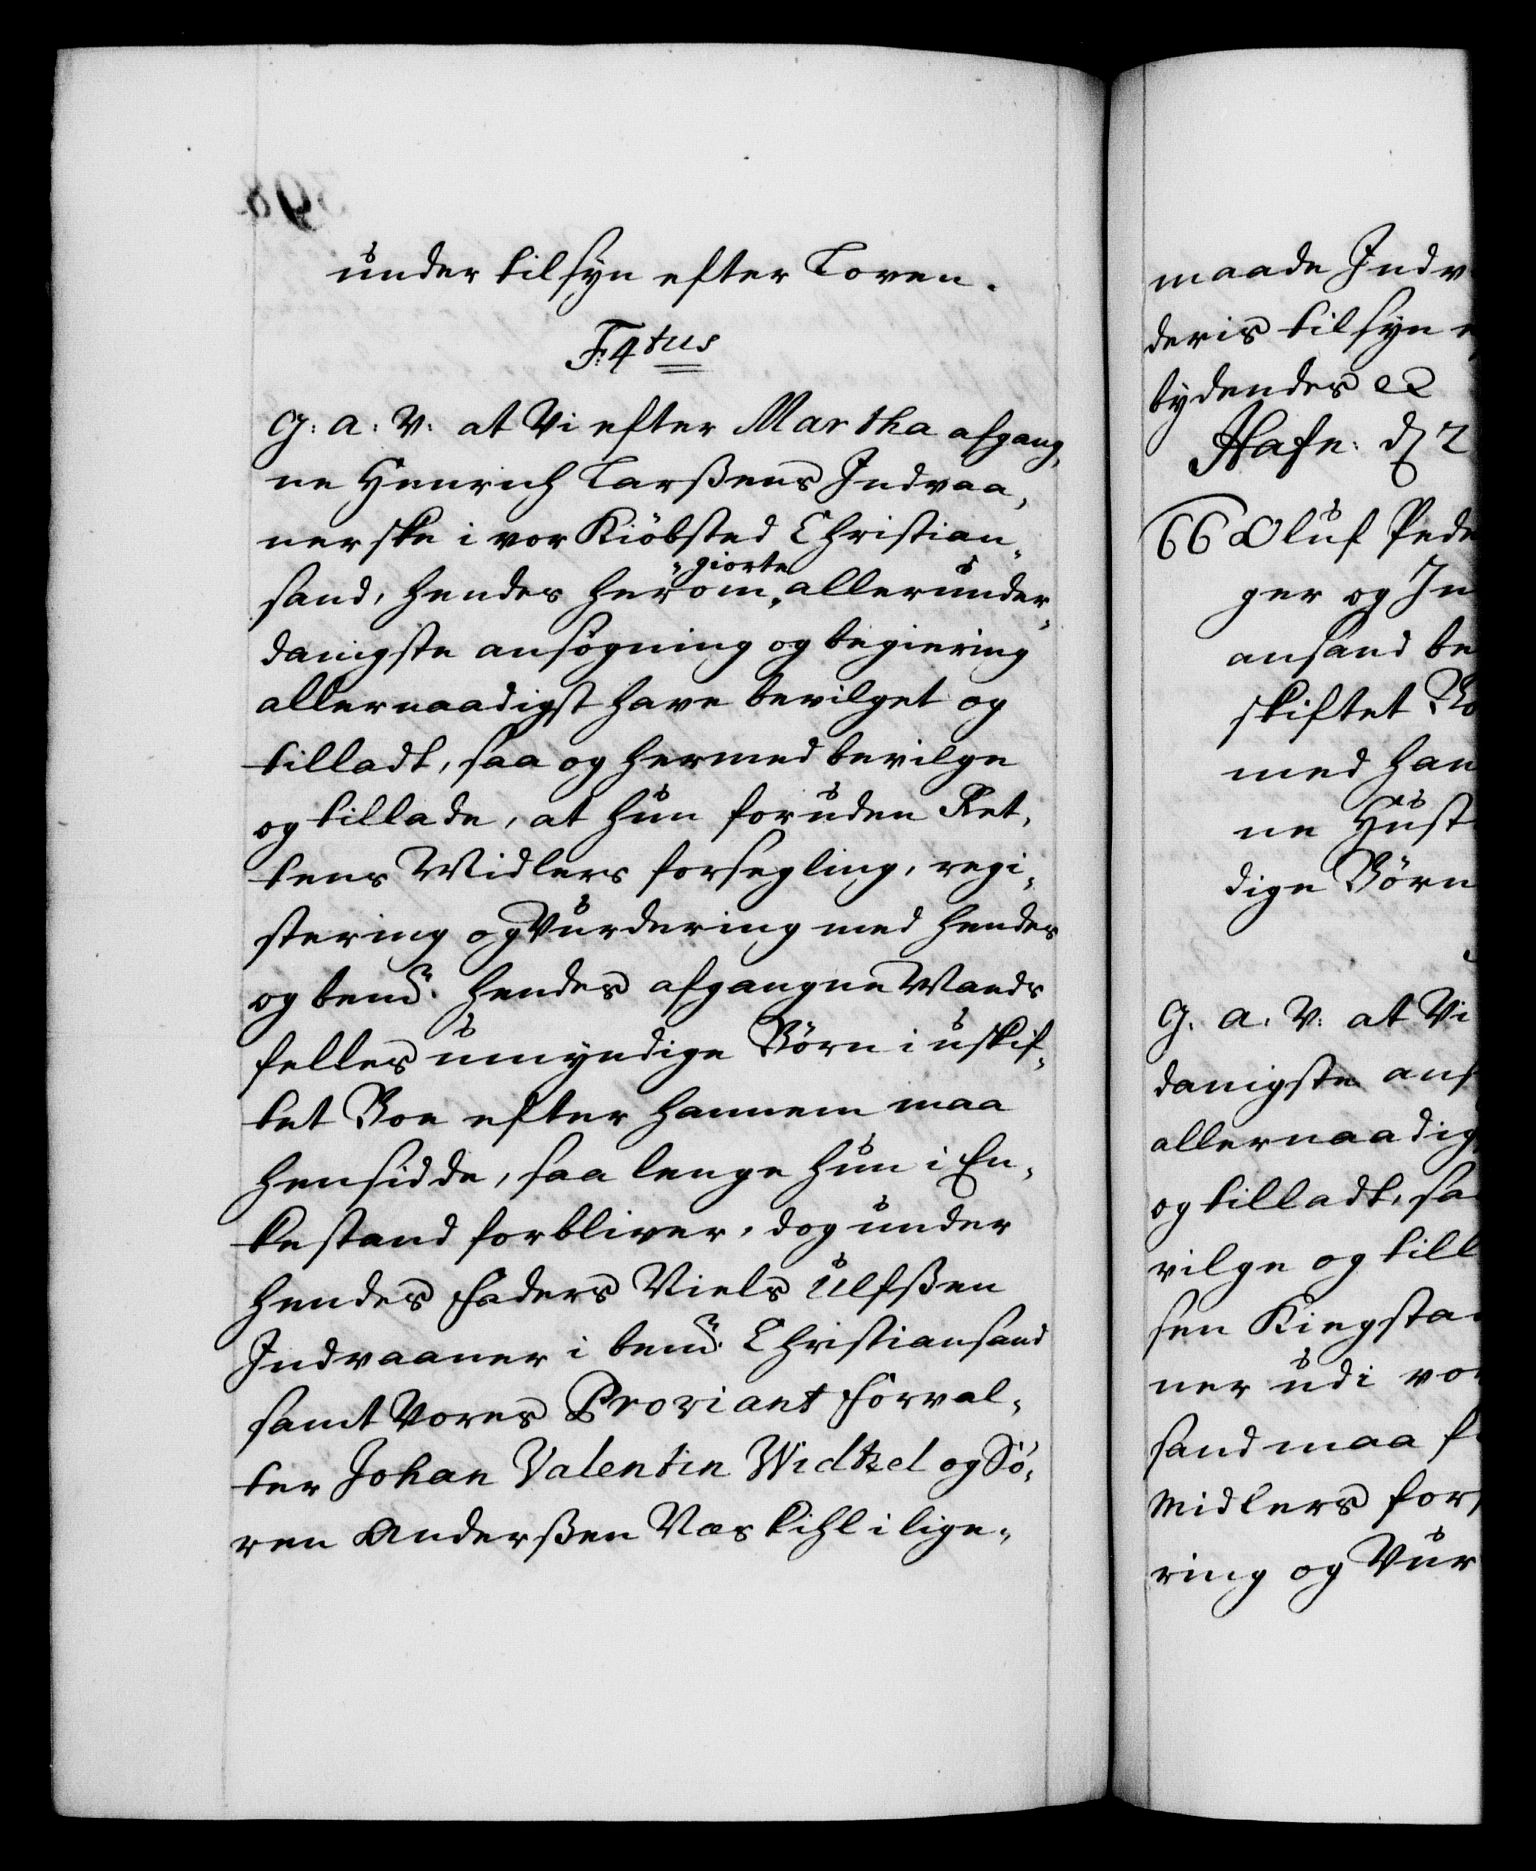 under tilsyn efter Loven.
F: 4tus
G: a: V: at Vi efter Martha afgang-
ne Henrich Larßens Indvaa-
nerske i vor Kiöbsted Christian-
sand, hendes herom giorte allerunder-
danigste ansøgning og begiering
allernaadigst have bevilget og
tilladt, saa og hermed bevilge
og tillade, at hun foruden Ret-
tens Midlers forsegling, regi-
stering og Vurdering med hendes
og bemd. hendes afgangne Mands
felles umyndige Børn i uskif-
tet Boe efter hannem maa
hensidde, saa lenge hun i En-
kestand forbliver, dog under
hendes Faders Niels Ulfßen
Indvaaner i bemd. Christiansand
samt Vores Proviant Forval-
ter Johan Valentin Widtzel og Sö-
ren Anderßen Næskihl i lige-
maade Indv
deris tilsyn e
bydendes &c
Hafn: d 2
66 Oluf Pede
ger og In
ansand be
skiftet Bo
med han
ne Hust
dige Börn
G. a. V: at Vi
danigste ans
allernaadig
og tilladt, sa
vilge og till
sen Kingsta
ner udi vor
sand maa f
Midlers fors
ring og Vur